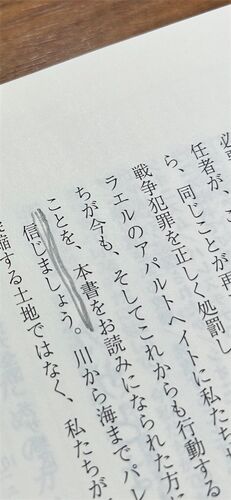 必
任者が、こ
ら、同じことが再
戦争犯罪を正しく処罰し
ラエルのアパルトヘイトに私たち
ちが今も、そしてこれからも行動する
ことを、本書をお読みになられた方
信じましょう。川から海までパレ
縮する土地ではなく、私たちが